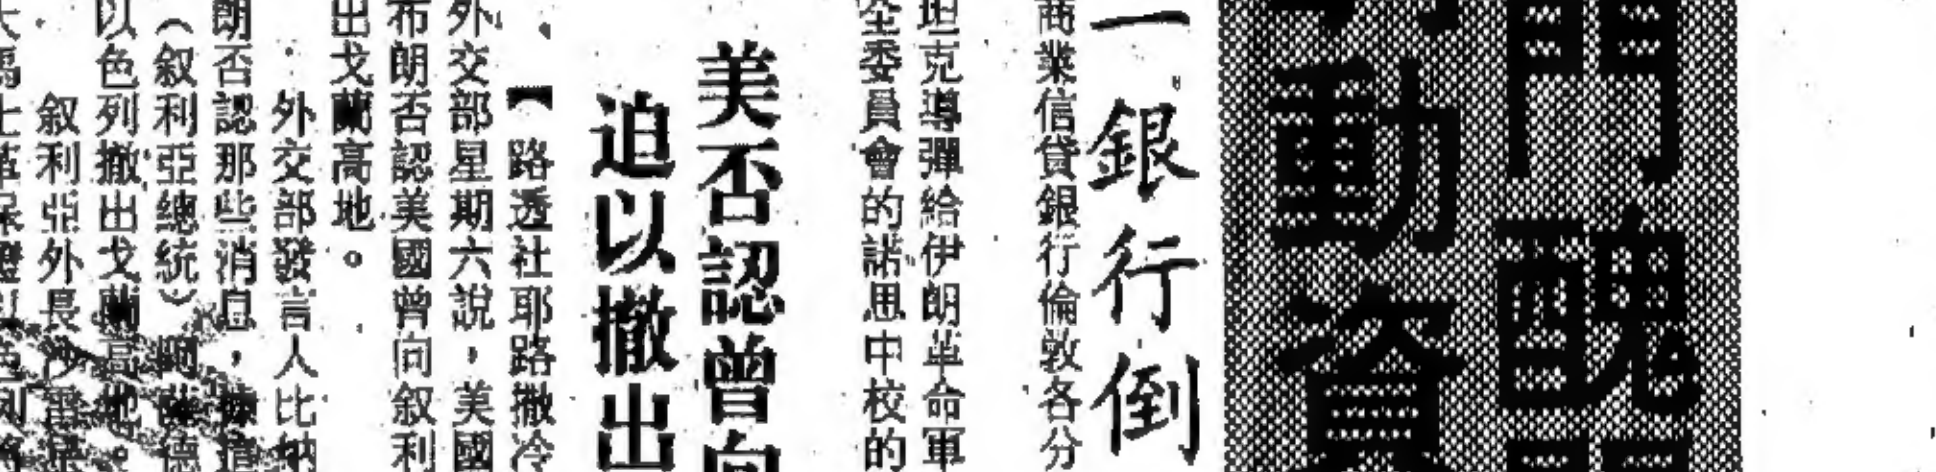 門醜
動資
一銀行倒
商業信貸銀行倫敦各分
坦克導彈給伊朗革命軍
全委員會的諾思中校的
美否認曾向
迫以撤出
【路透社耶路撒冷
外交部星期六說，美國
布朗否認美國曾向叙利
出戈蘭高地。
外交部發言人比納
朗否認那些消息，據指
（叙利亞總統）阿薩德
以色列撤出戈蘭高地。
叙利亞外長沙雷
大馬士革保證以色列將